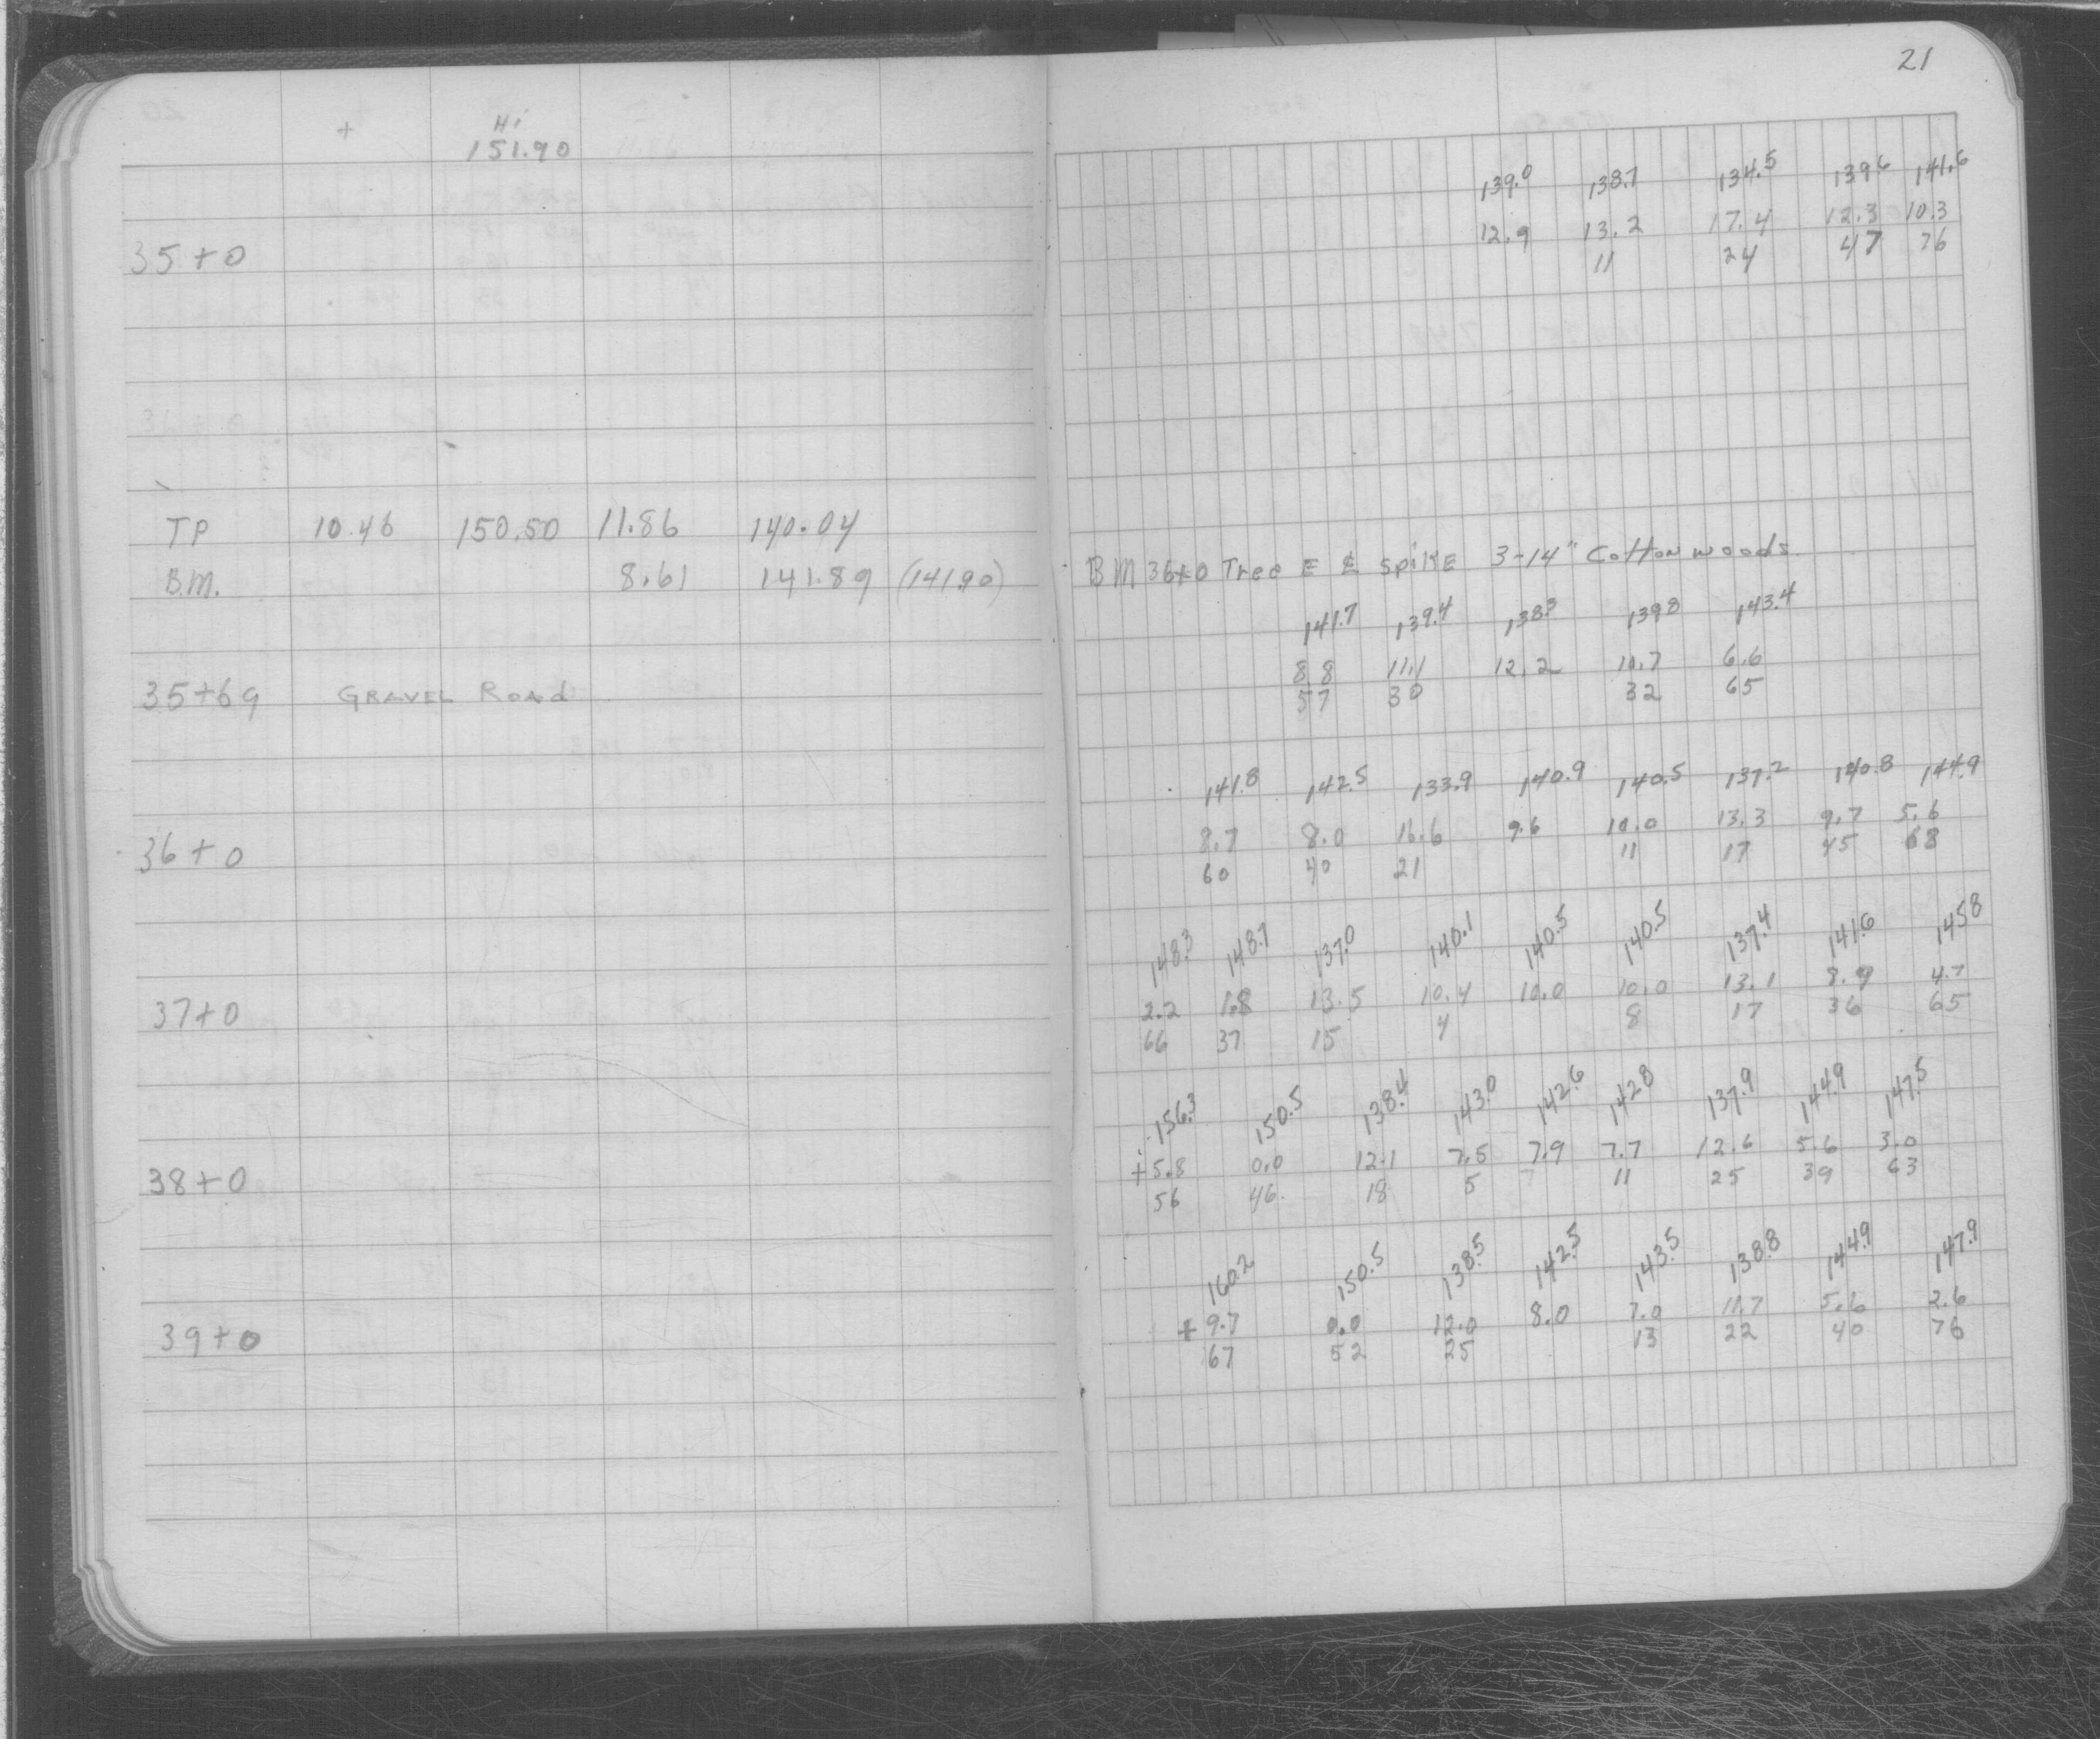 21
+ Hi
151.90
139.0 138.7 134.5 139.6 141.6
35+0 12.9 13.2 17.4 12.3 10.3
11 24 47 76
TP 10.46 150.50 11.86 140.04
B.M. 8.61 141.89 (141.90) BM 36+0 Tree E & Spike 3-14" Cottonwoods
141.7 139.4 138.3 139.8 143.4
8.8 11.1 12.2 10.7 6.6
35+69 GRAVEL ROAd 57 30 32 65
141.8 142.5 133.9 140.9 140.5 137.2 140.8 144.9
36+0 8.7 8.0 16.6 9.6 10.0 13.3 9.7 5.6
60 40 21 11 17 45 68
148.3 148.7 137.0 140.1 140.5 140.5 137.4 141.6 145.8
37+0 2.2 1.8 13.5 10.4 10.0 10.0 13.1 8.9 4.7
66 37 15 4 8 17 36 65
156.3 150.5 138.4 143.0 142.6 142.8 137.9 144.9 147.5
38+0 +5.8 0.0 12.1 7.5 7.9 7.7 12.6 5.6 3.0
56 46 18 5 11 25 39 63
160.2 150.5 138.5 142.5 143.5 138.8 144.9 147.9
39+0 +9.7 0.0 12.0 8.0 7.0 11.7 5.6 2.6
67 52 25 13 22 40 76